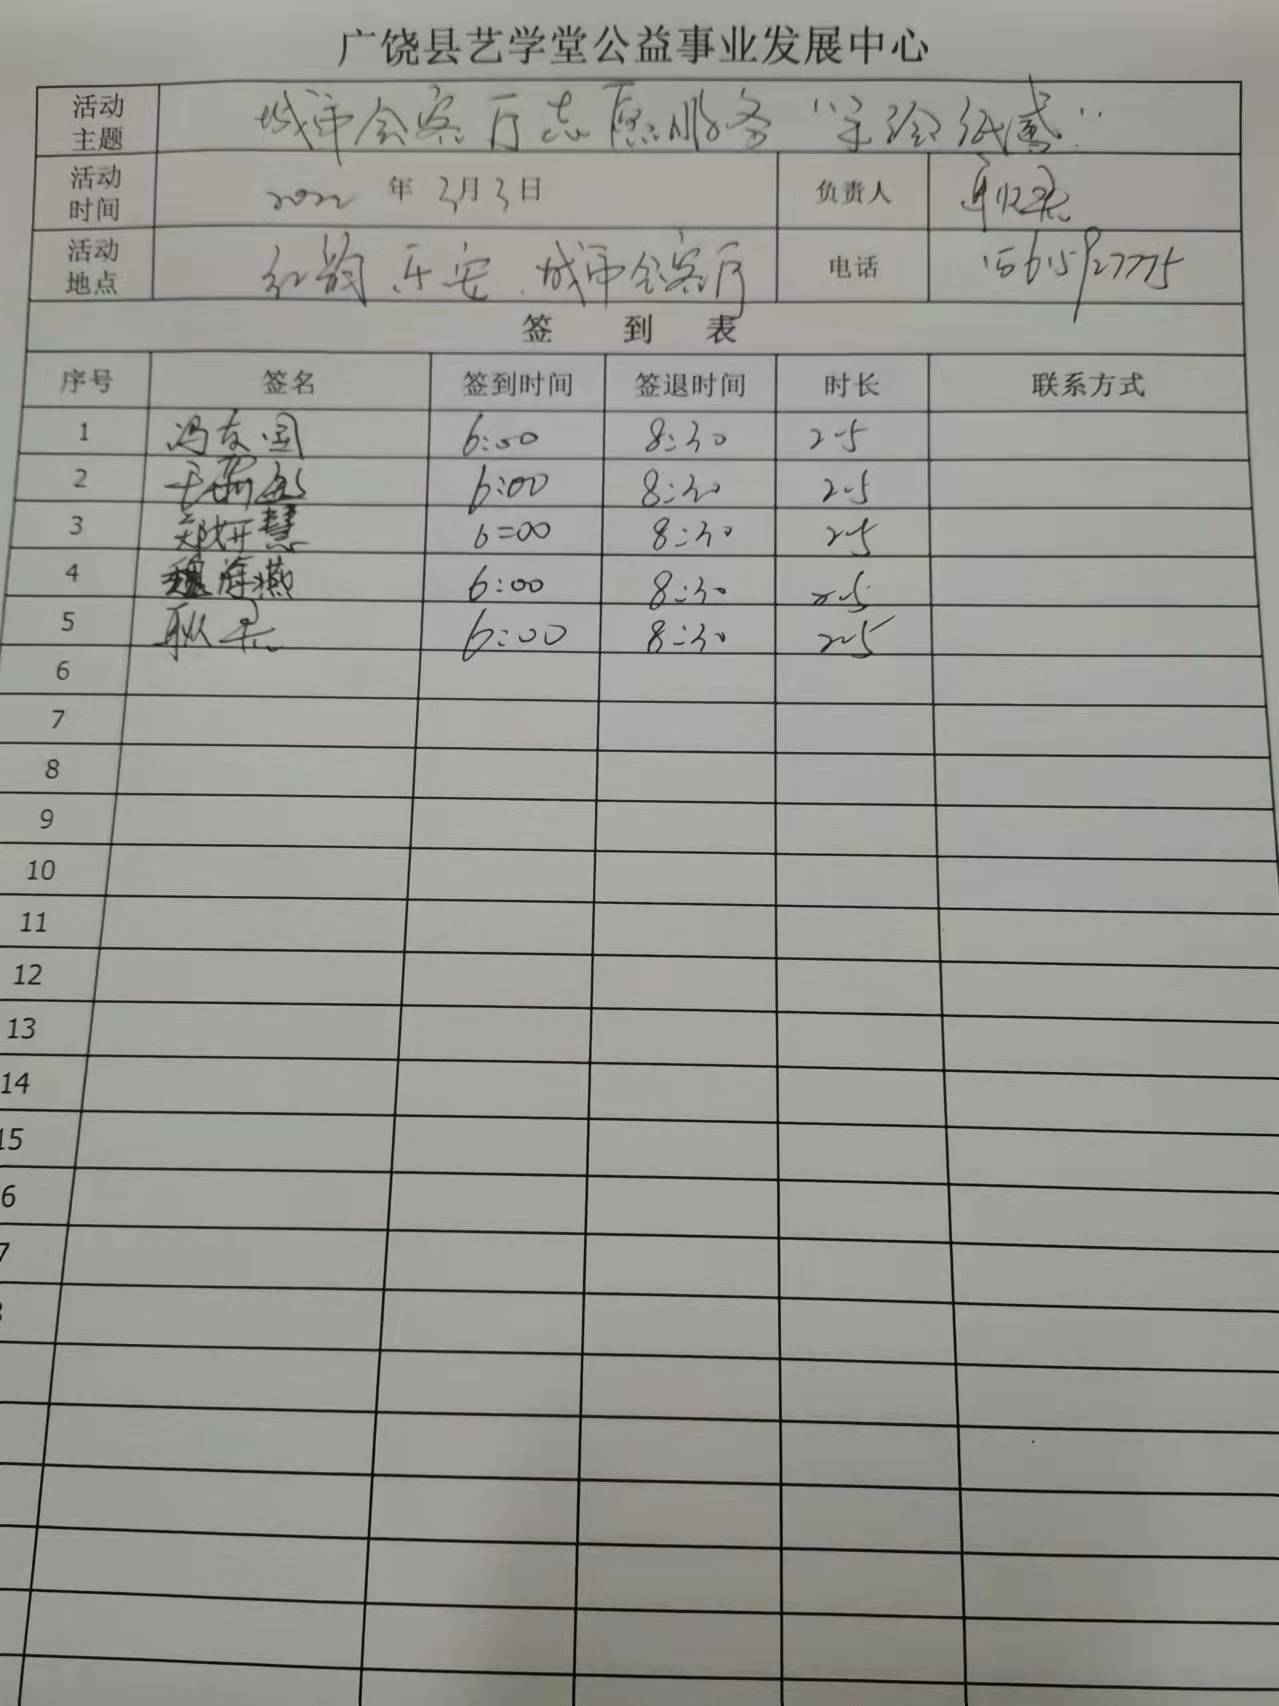 广饶县艺学堂公益事业发展中心
活动主题 城市会客厅志愿服务 “手绘纸鸢”
活动时间 2022 年 3月3日 负责人
活动地点 红韵乐安.城市会客厅 电话
签 到 表
序号 签名 签到时间 签退时间 时长 联系方式
1 冯友国 6:00 8:30 2.5
2 6:00 8:30 2.5
3 郑妍慧 6:00 8:30 2.5
4 魏海燕 6:00 8:30 2.5
5 6:00 8:30 2.5
6
7
8
9
10
11
12
13
14
15
6
7